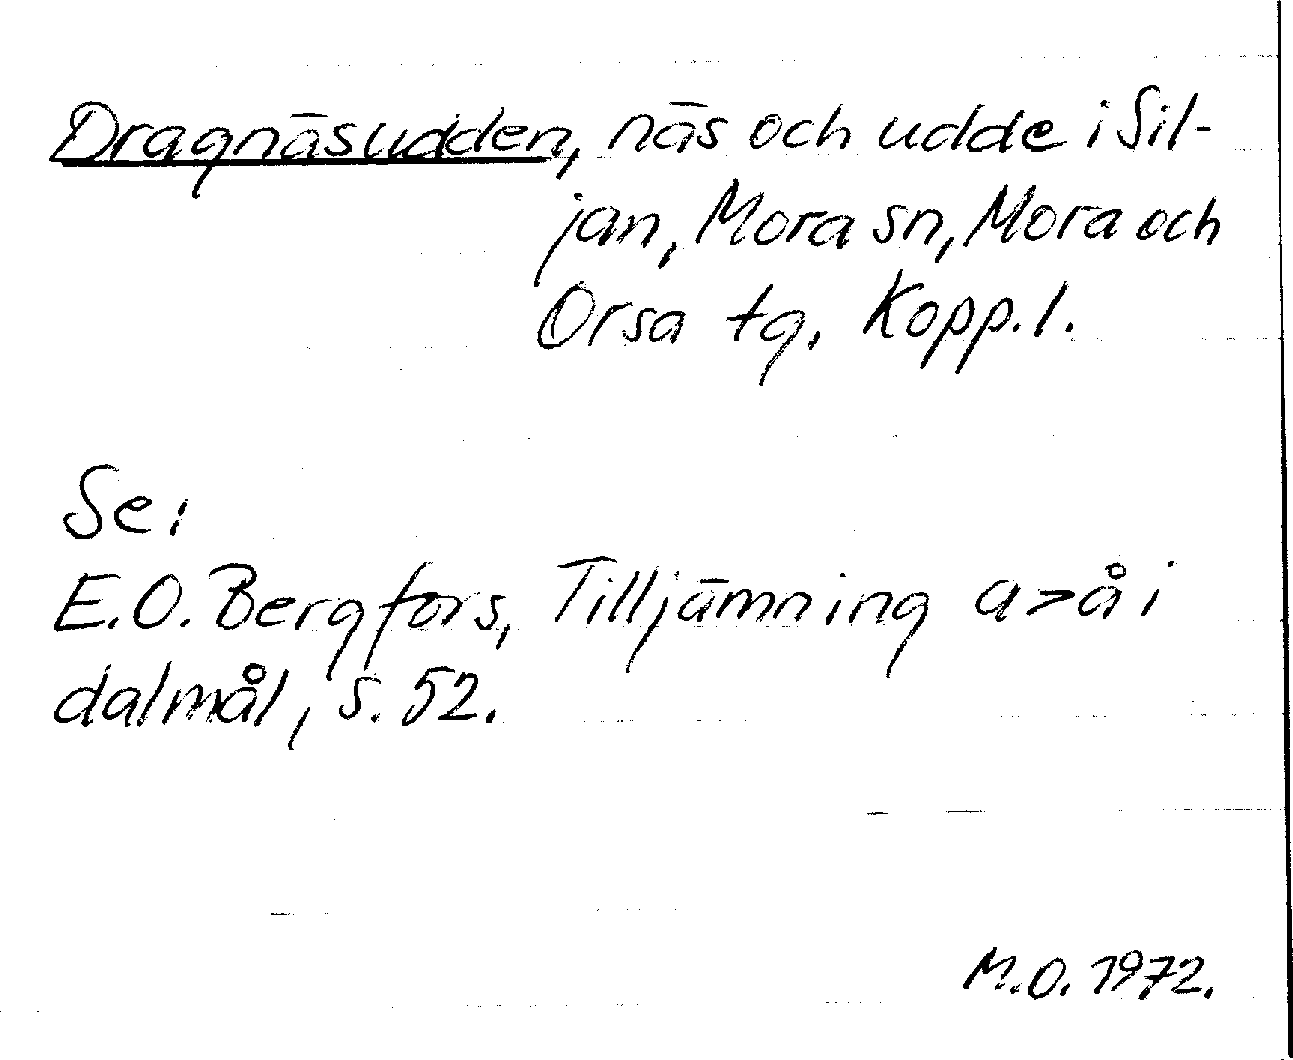 Dragnäsudden, näs och udde i Sil-
jan, Mora sn, Mora och
Orsa tg, Kopp. l.
Se:
E.O. Bergfors, Tilljämning a>å i
dalmål, s. 52.
M.O. 1972.